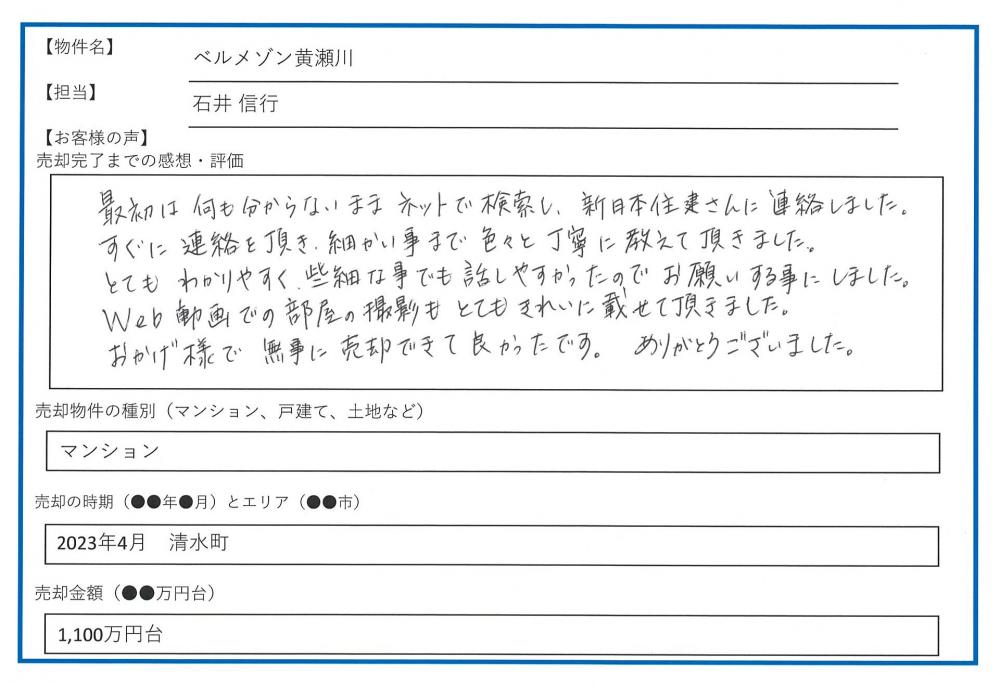 【物件名】
ベルメゾン黄瀬川
【担当】
石井 信行
【お客様の声】
売却完了までの感想・評価
最初は何も分からないままネットで検索し、新日本住建さんに連絡しました。
すぐに連絡を頂き、細かい事まで色々と丁寧に教えて頂きました。
とてもわかりやすく、些細な事でも話しやすかったのでお願いする事にしました。
Web動画での部屋の撮影もとてもきれいに載せて頂きました。
おかげ様で無事に売却できて良かったです。 ありがとうございました。
売却物件の種別（マンション、戸建て、土地など）
マンション
売却の時期（●●年●月）とエリア（●●市）
2023年4月　清水町
売却金額（●●万円台）
1,100万円台